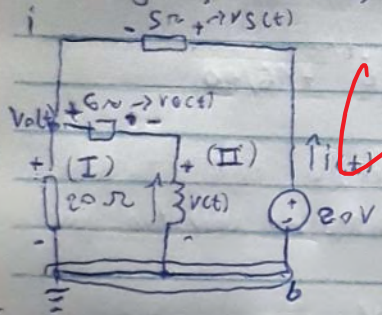 i
- 5Ω + → v5(t)
Vo(t) + 6Ω → v6(t)
+ -
+ (I) + (II) ↑ i(t)
20Ω v(t) + 20V
- - -
b